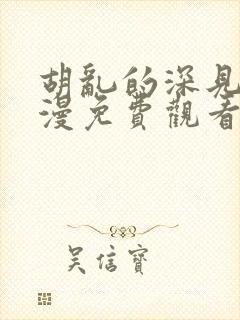 胡亂的深見
漫免費觀看
吳信寶